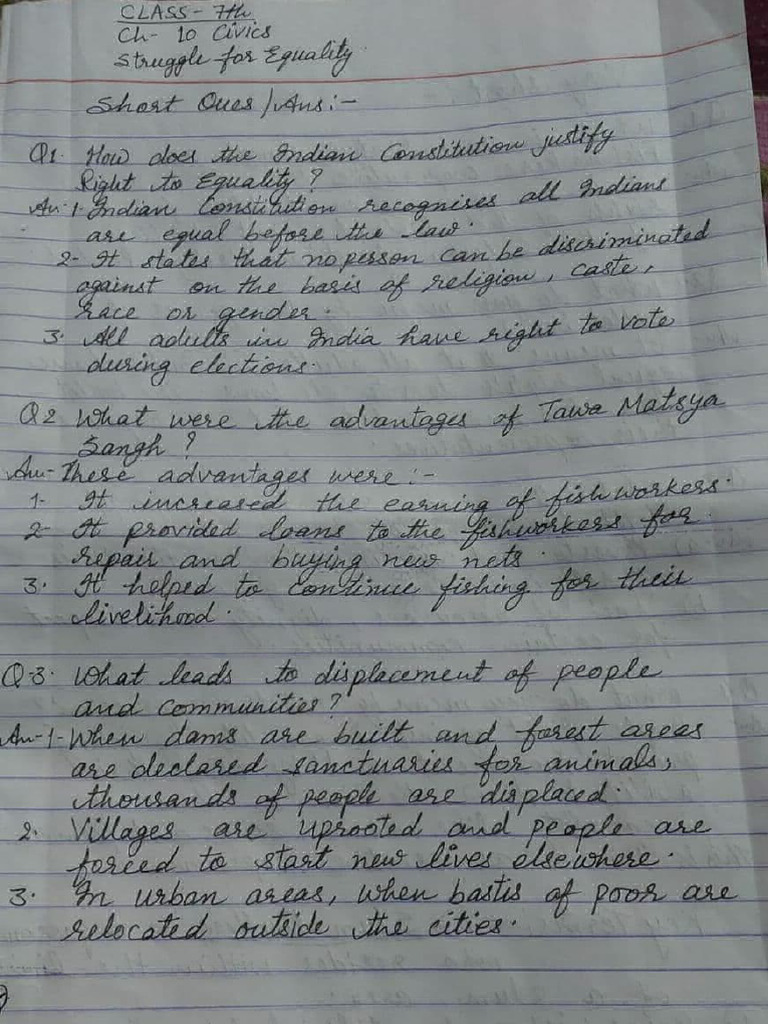 CLASS- 7th
Ch- 10 Civics
Struggle for Equality
Short Ques/Ans:-
Q1. How does the Indian Constitution justify
Right to Equality?
An:1. Indian Constitution recognises all Indians
are equal before the law.
2- It states that no person can be discriminated
against on the basis of religion, caste,
race or gender.
3. All adults in India have right to vote
during elections.
Q2 What were the advantages of Tawa Matsya
Sangh?
An- These advantages were:-
1- It increased the earning of fishworkers.
2- It provided loans to the fishworkers for
repair and buying new nets.
3. It helped to continue fishing for their
livelihood.
Q-3. What leads to displacement of people
and communities?
An-1- When dams are built and forest areas
are declared sanctuaries for animals,
thousands of people are displaced.
2. Villages are uprooted and people are
forced to start new lives elsewhere.
3. In urban areas, when bastis of poor are
relocated outside the cities.